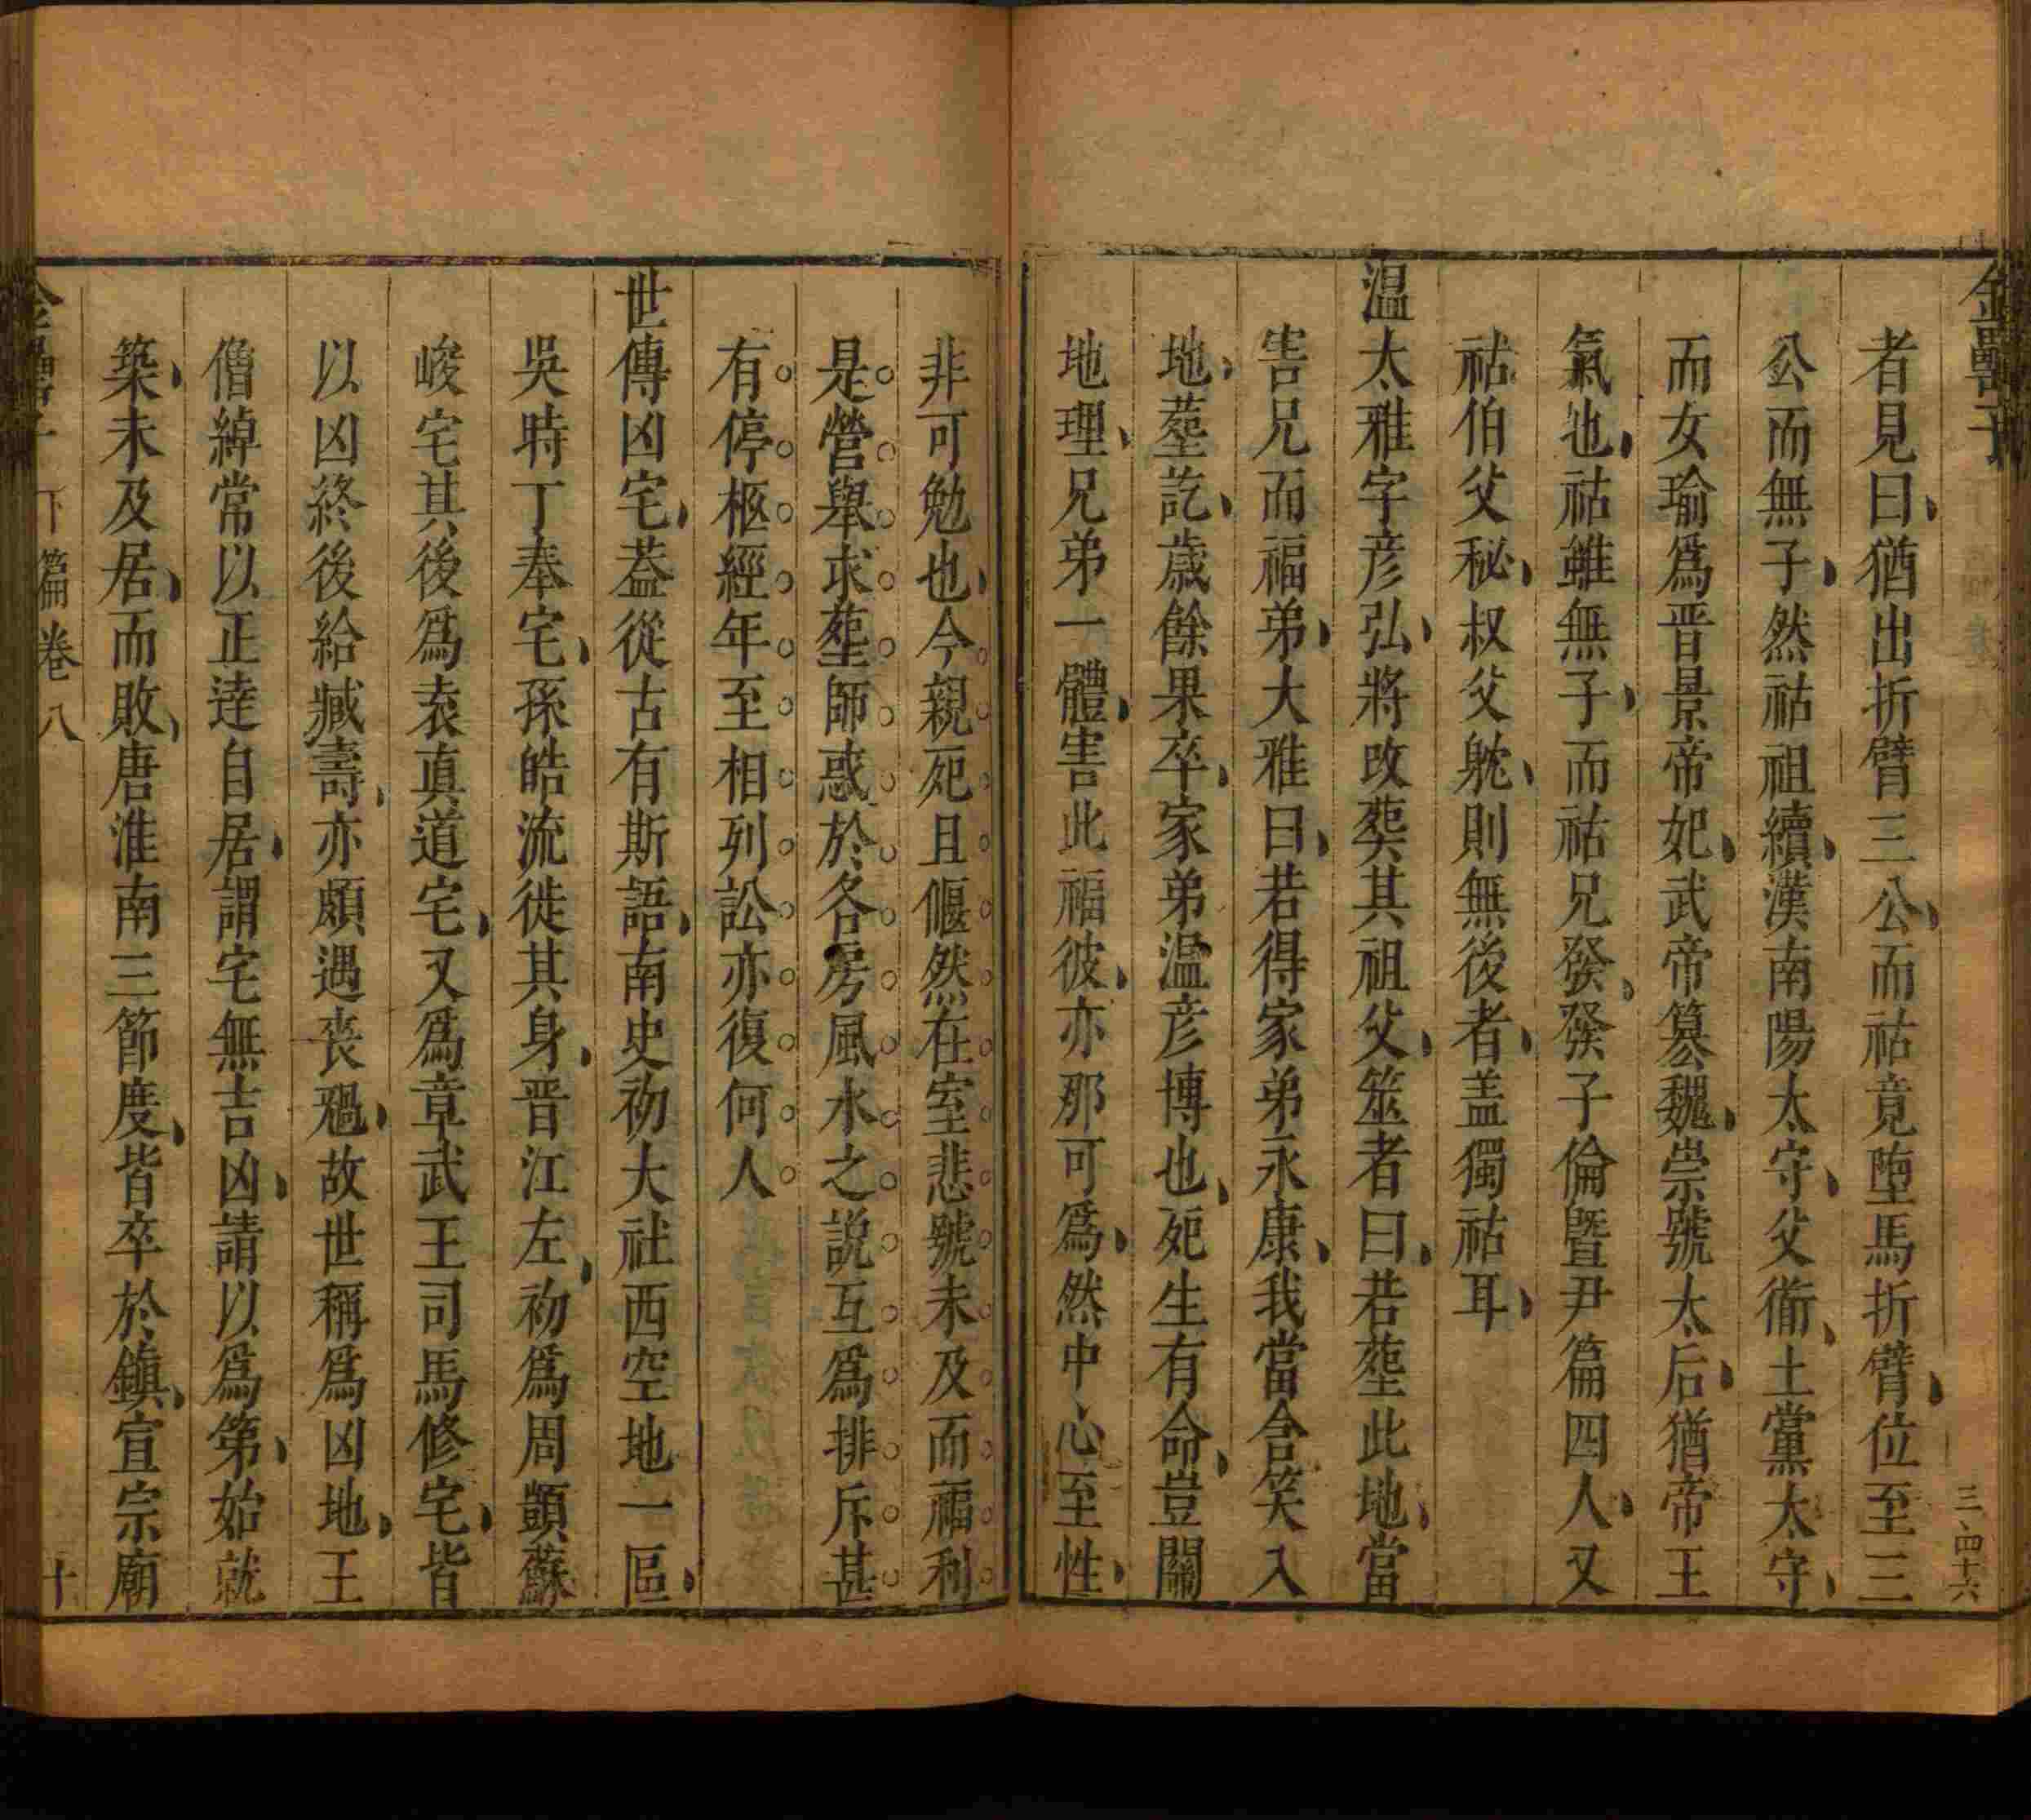 金罍子
三百四十六
者見曰、猶出折臂三公、而祜竟墮馬折臂、位至三
公而無子、然祜祖續、漢南陽太守、父衜、土黨太守、
而女瑜爲晋景帝妃、武帝篡魏、崇號太后、猶帝王
氣也、祜雖無子、而祜兄發、發子倫暨尹篇四人、又
祜伯父秘、叔父躭、則無後者、盖獨祜耳、
温太雅字彥弘、將改葬其祖父、筮者曰、若塟此地、當
害兄而福弟、大雅曰、若得家弟永康、我當含笑入
地、塟訖、歲餘果卒、家弟温彥博也、死生有命、豈關
地理、兄弟一體、害此福彼、亦那可爲、然中心至性、
非可勉也、今親死且偃然在室悲號未及而福利
是營舉求塟師惑於各房風水之說互爲排斥甚
有停柩經年至相列訟亦復何人
世傳凶宅、葢從古有斯語、南史初大社西空地一區、
吳時丁奉宅、孫皓流徙其身、晋江左、初爲周顗蘇
峻宅其後爲袁眞道宅、又爲章武王司馬修宅、皆
以凶終後給臧壽、亦頗遇喪禍、故世稱爲凶地、王
僧綽常以正達自居、謂宅無吉凶、請以爲第、始就
築、未及居、而敗、唐淮南三節度、皆卒於鎮、宣宗廟
金罍子 下篇卷八 十